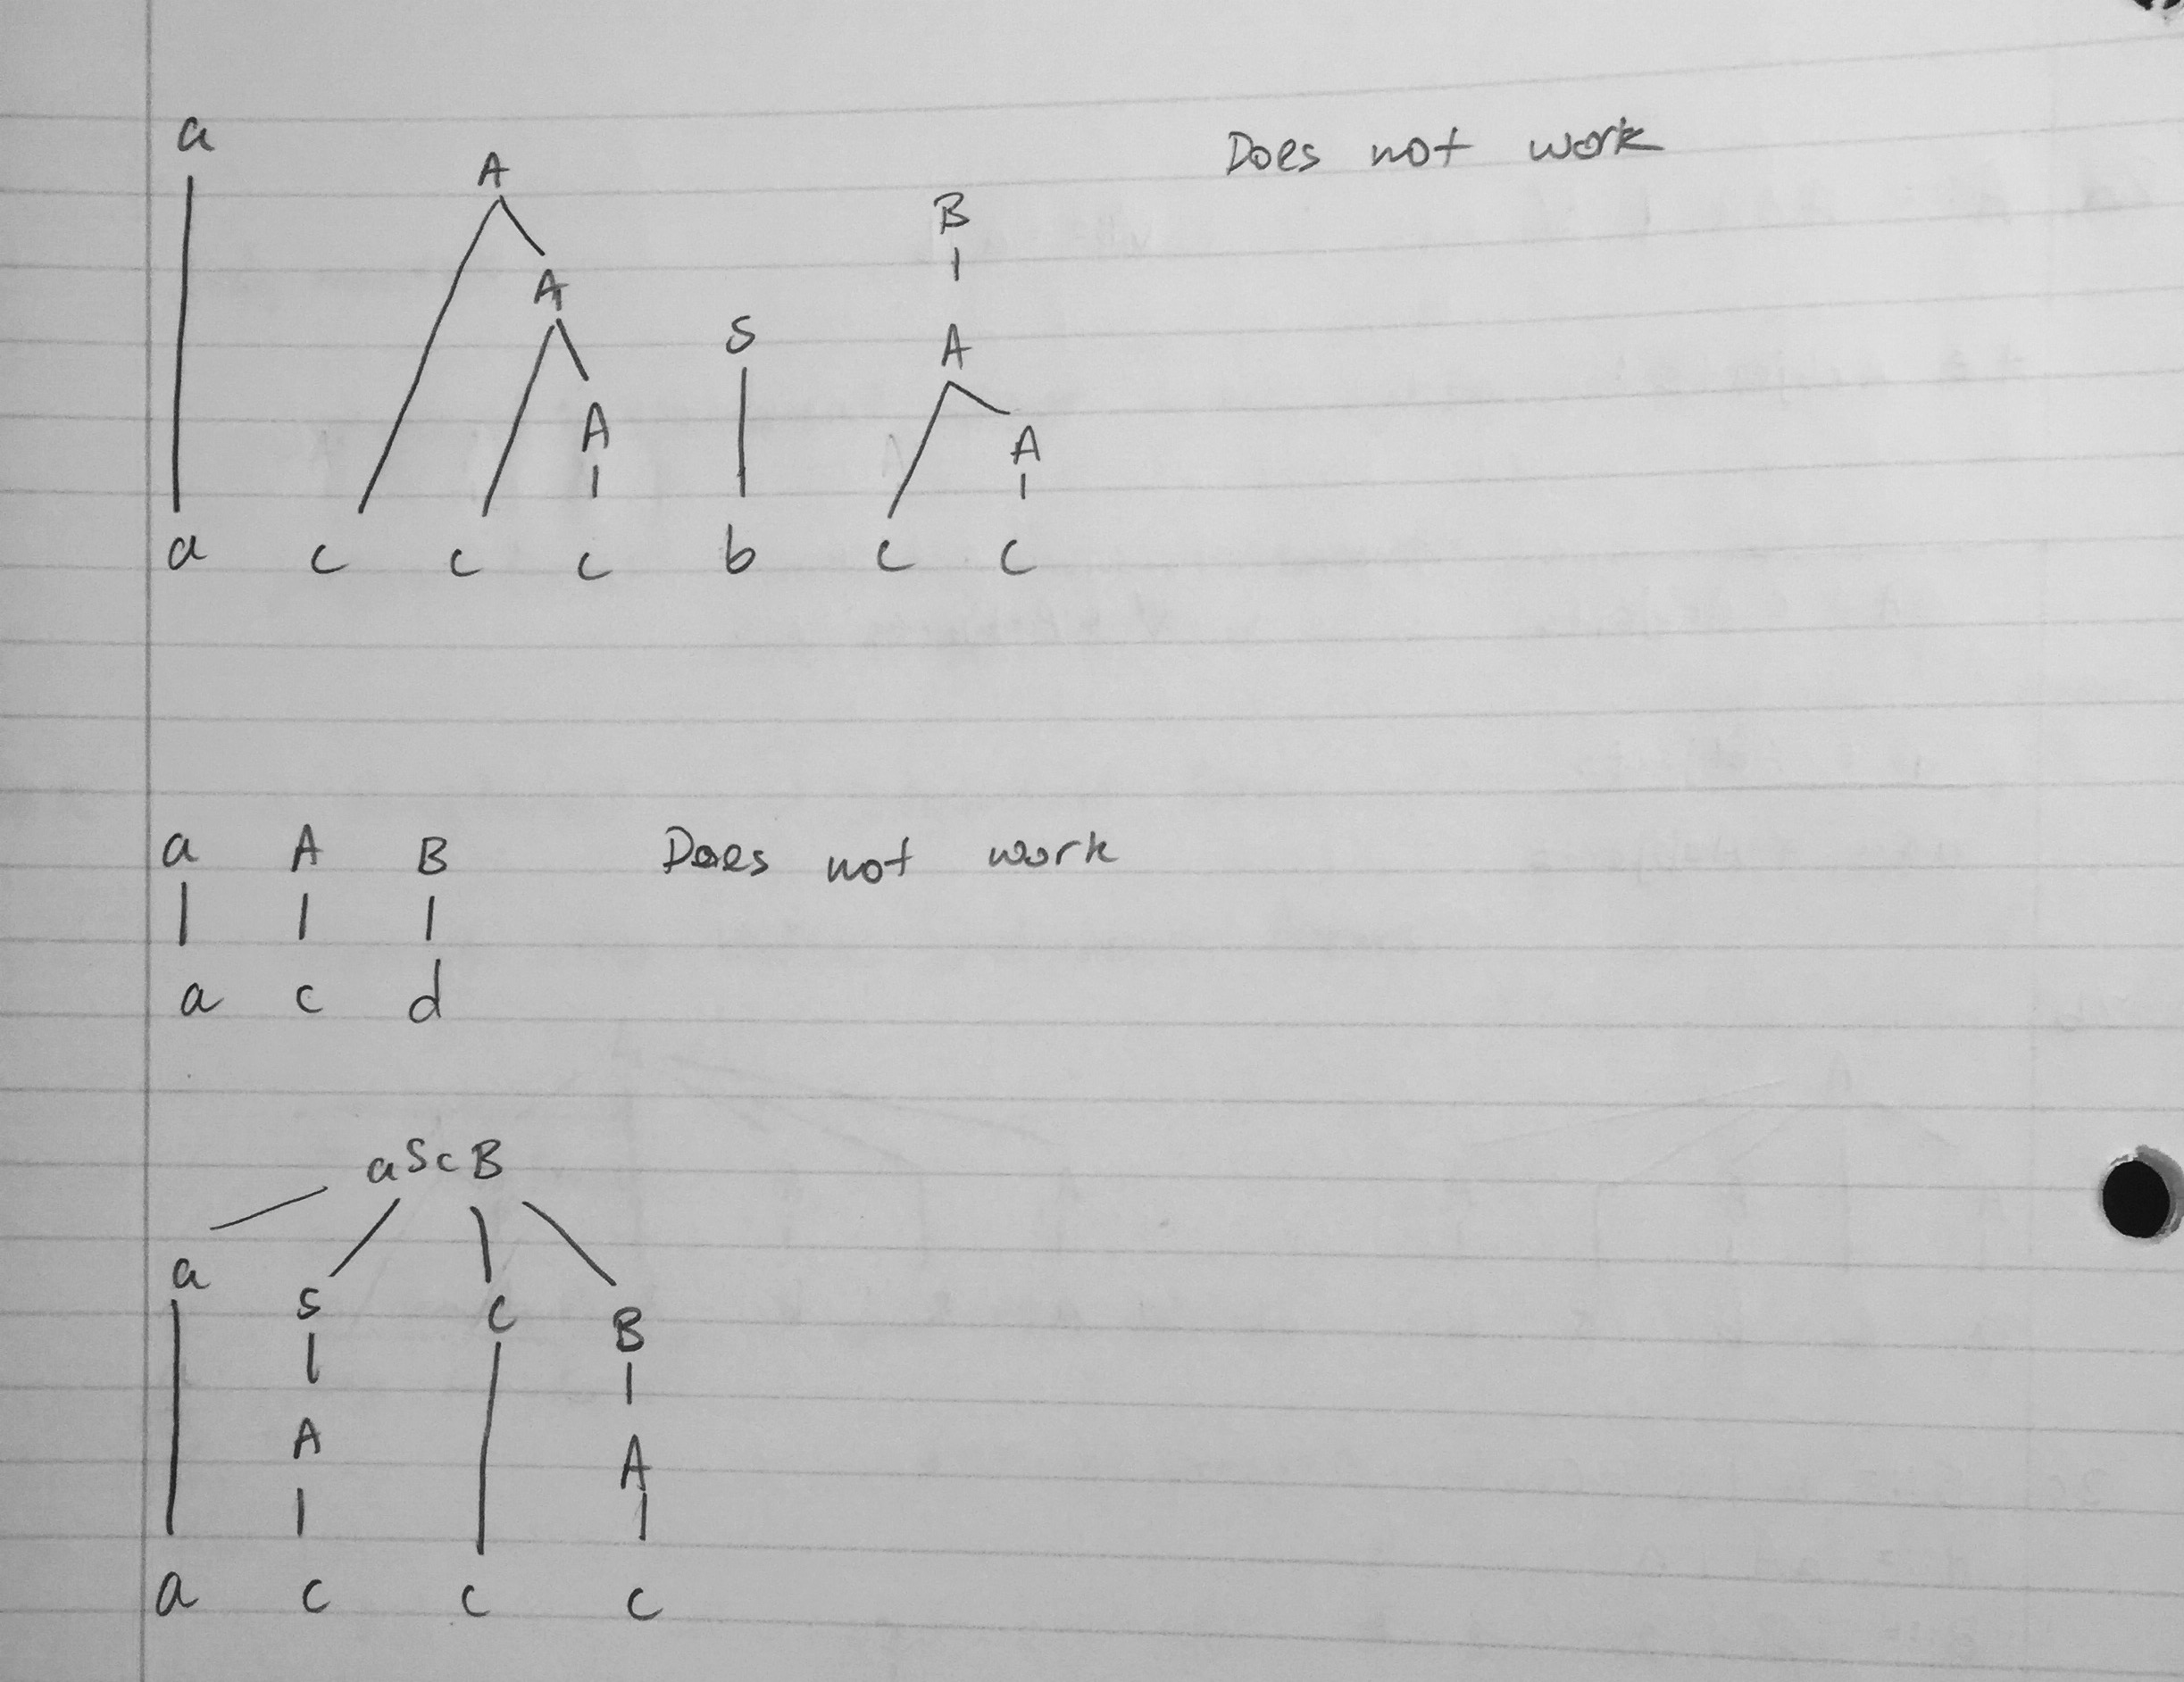 a
A Does not work
B
A
S A
A A
a c c c b c c
a A B Does not work
a c d
aScB
a S c B
A A
a c c c